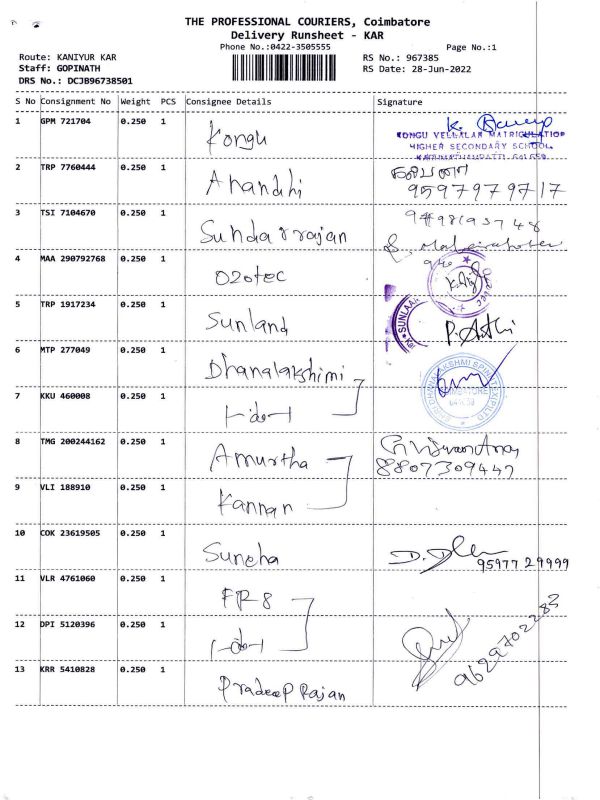 THE PROFESSIONAL COURIERS, Coimbatore
Delivery Runsheet - KAR
Phone No.:0422-3505555 Page No.:1
Route: KANIYUR KAR RS No.: 967385
Staff: GOPINATH RS Date: 28-Jun-2022
DRS No.: DCJB96738501
S No Consignment No Weight PCS Consignee Details Signature
1 GPM 721704 0.250 1 Kongu
KONGU VELLALAR MATRICULATION
HIGHER SECONDARY SCHOOL
2 TRP 7760444 0.250 1 Anandhi 9597979717
3 TSI 7104670 0.250 1 Sundarrajan
4 MAA 290792768 0.250 1 Ozotec
5 TRP 1917234 0.250 1 Sunland
6 MTP 277049 0.250 1 Dhanalakshimi
7 KKU 460008 0.250 1 -do-
8 TMG 200244162 0.250 1 Amurtha
9 VLI 188910 0.250 1 Kannan
10 COK 23619505 0.250 1 95977 29999
11 VLR 4761060 0.250 1
12 DPI 5120396 0.250 1 -do- 9629702283
13 KRR 5410828 0.250 1 Pradeep Rajan